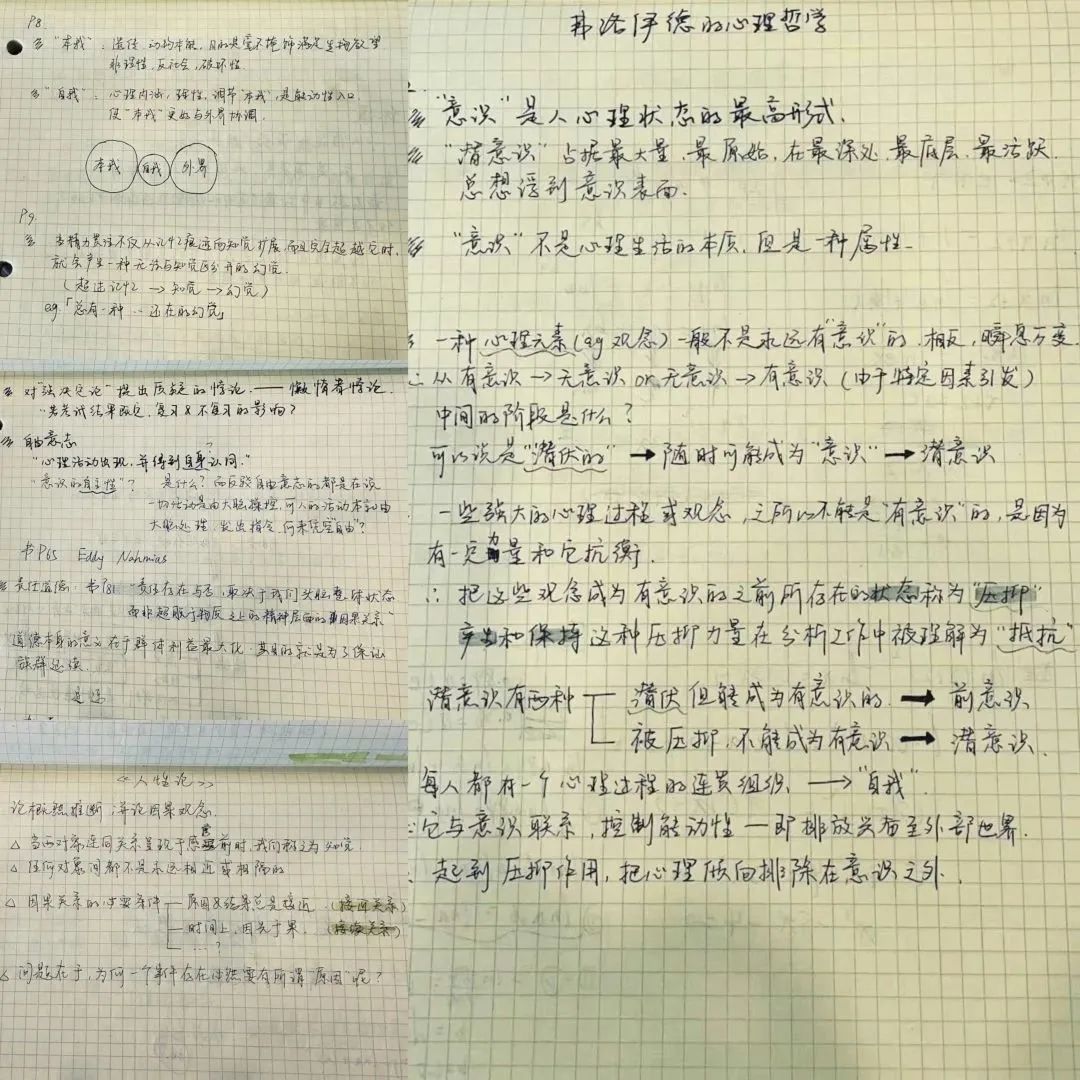 P8.
"本我"：遗传，动物本能，目的是毫不掩饰满足生物欲望
非理性，反社会，破坏性.
"自我"：心理内涵，弹性，调节"本我"，是能动性入口.
使"本我"更好与外界协调.
本我 自我 外界
P9.
当精力贯注不仅从记忆痕迹向知觉扩展，而且完全超越它时，
就会产生一种无法与知觉区分开的幻觉.
（超过记忆 → 知觉 → 幻觉）
eg.「总有一种…还在的幻觉」
对"强决定论"提出质疑的悖论. —— 懒惰者悖论.
"若考试结果既定，复习&不复习的影响？
自由意志
"心理活动出现，并得到自身认同."
"意识的自主性"？ 是什么？而反驳自由意志的都是在说
一切活动是由大脑操控，可人的活动本就由
大脑处理，发出指令，何来凭空"自由"？
书P65 Eddy Nahmias
责任道德：书P81 "责任存在与否，取决于我们头脑整体状态
而非超脱于物质之上的精神层面的因果关系"
道德本身的意义在于群体利益最大化. 其目的就是为了保证
族群延续.
《人性论》
论概然推断；并论因果观念.
△ 当两对象连同关系呈现于感官前时，我们称之为知觉.
△ 任何对象间都不是永远相近或相隔的
△ 因果关系的必要条件 — 原因&结果总是接近（接近关系）
— 时间上，因先于果.（接续关系）
— …？
△ 问题在于，为何一个事件存在必然要有所谓"原因"呢？
弗洛伊德的心理哲学
"意识"是人心理状态的最高形式.
"潜意识"占据最大量，最原始，在最深处，最底层，最活跃.
总想浮到意识表面.
"意识"不是心理生活的本质，但是一种属性.
一种心理元素(eg观念)一般不是永远有"意识"的，相反，瞬息万变
∴ 从有意识 → 无意识 or 无意识 → 有意识（由于特定因素引发）
中间的阶段是什么？
可以说是"潜伏的" → 随时可能成为"意识" → 潜意识
一些强大的心理过程或观念，之所以不能是"有意识"的，是因为
有一定力量和它抗衡.
∴ 把这些观念成为有意识的之前所存在的状态称为"压抑"
产生和保持这种压抑力量在分析工作中被理解为"抵抗"
潜意识有两种 — 潜伏但能成为有意识的. → 前意识
— 被压抑，不能成为有意识 → 潜意识.
每人都有一个心理过程的连贯组织. → "自我"
∴它与意识联系，控制能动性 — 即排放兴奋至外部世界.
∴ 起到压抑作用，把心理倾向排除在意识之外.